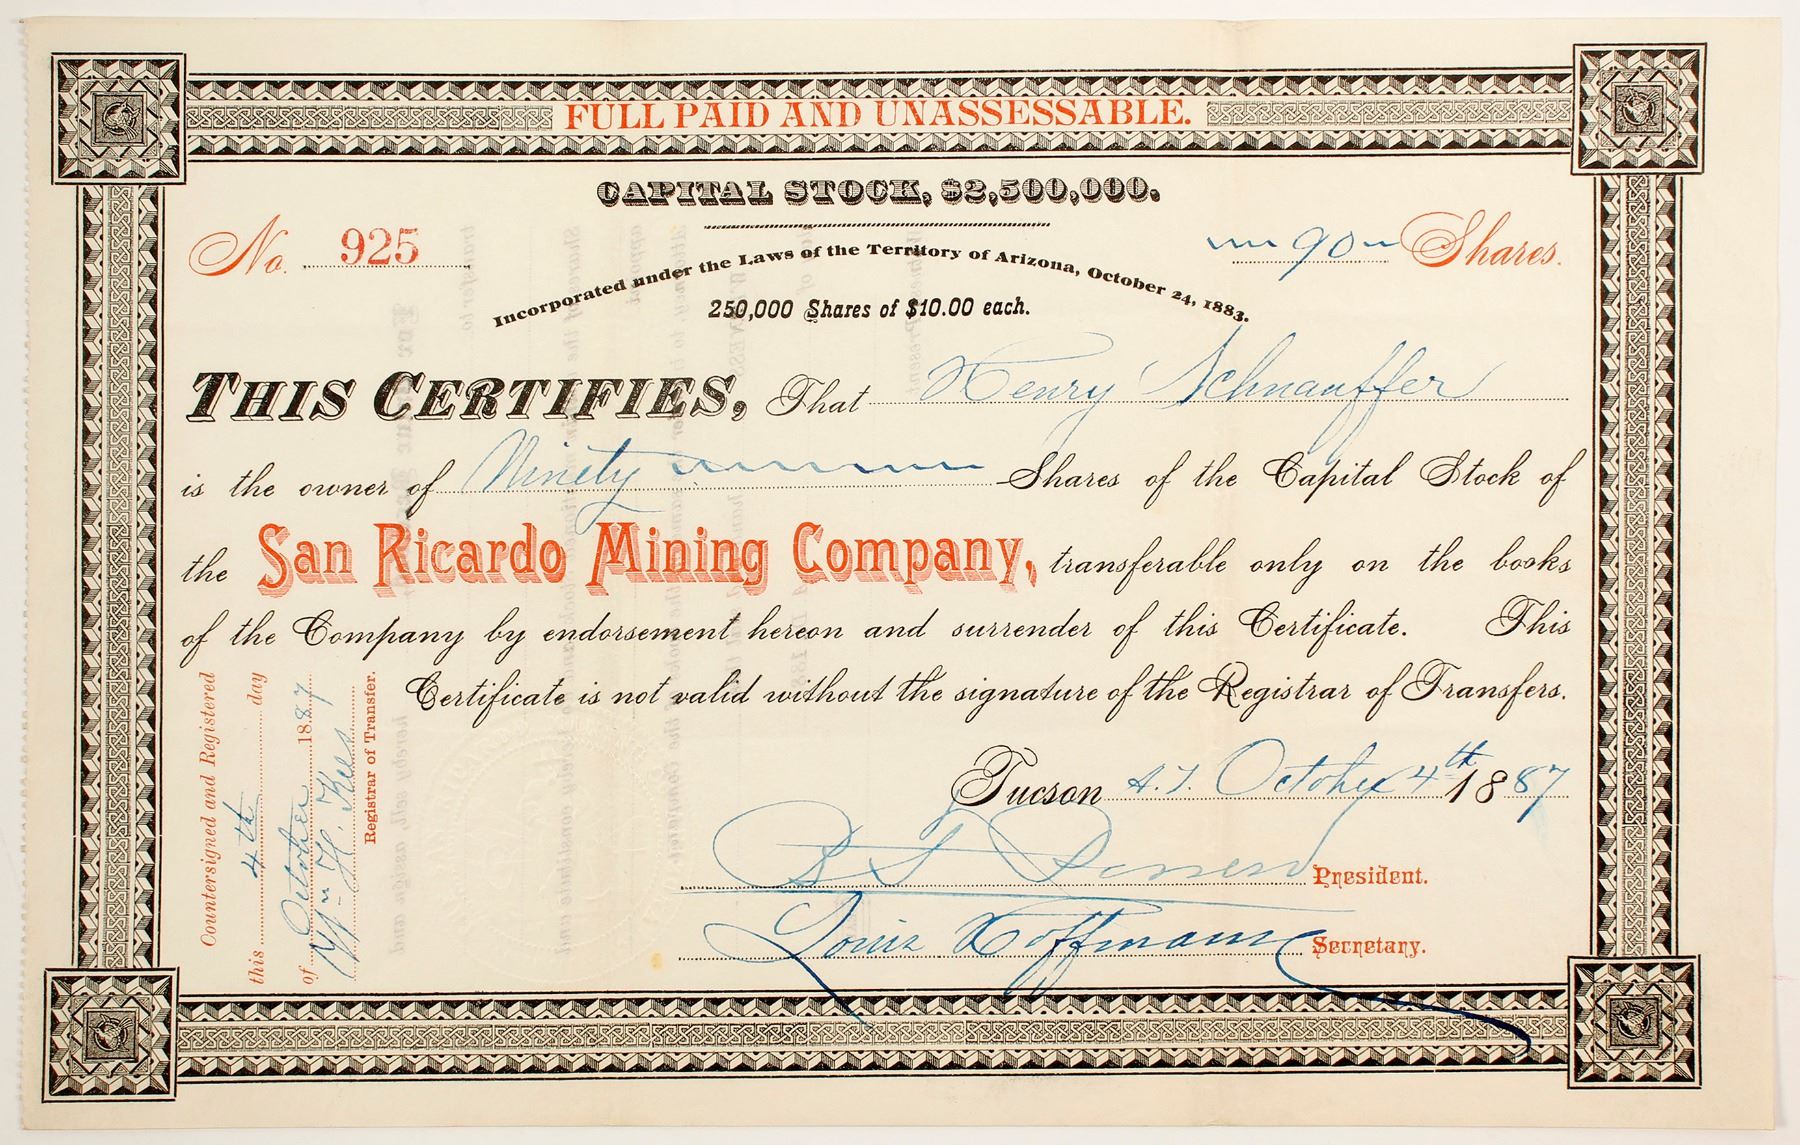 FULL PAID AND UNASSESSABLE.
CAPITAL STOCK, $2,500,000.
No. 925
90 Shares.
Incorporated under the Laws of the Territory of Arizona, October 24, 1883.
250,000 Shares of $10.00 each.
THIS CERTIFIES, That Henry Schnauffer
is the owner of Ninety Shares of the Capital Stock of
the San Ricardo Mining Company, transferable only on the books
of the Company by endorsement hereon and surrender of this Certificate. This
Certificate is not valid without the signature of the Registrar of Transfers.
Tucson A.T. October 4th 1887
President.
Louis Hoffmann Secretary.
Countersigned and Registered
this 4th day
of October 1887
Wm H.
Registrar of Transfer.